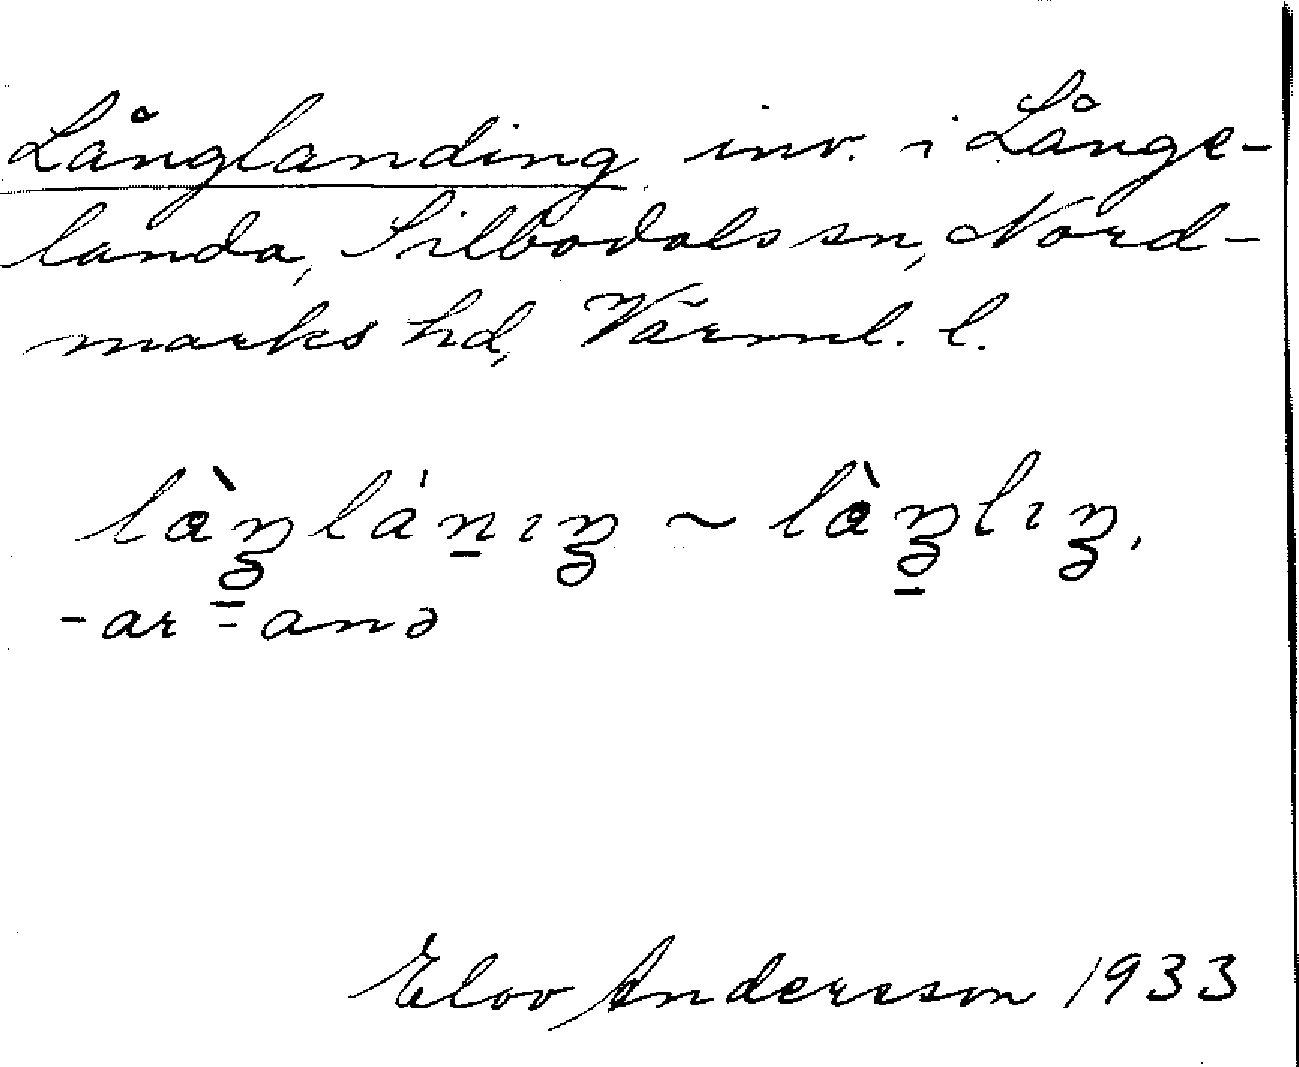 Långlanding inv. i Långe-
landa, Silbodals sn, Nord-
marks hd, Värml. l.
làŋláṉıŋ ~ làŋ̱lıŋ,
-ar -anə
Elov Andersson 1933